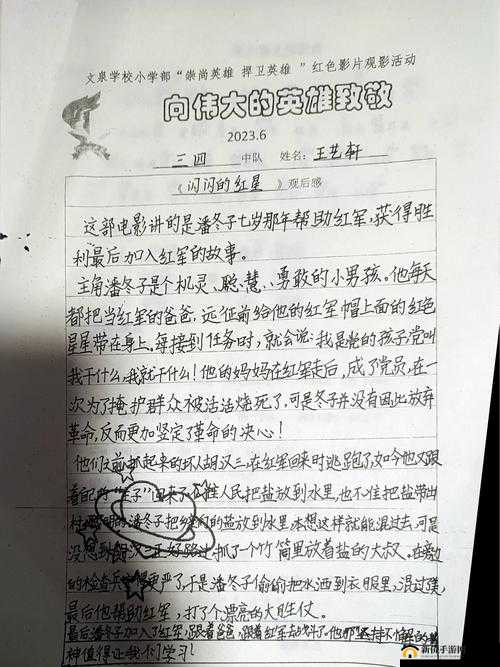 文泉学校小学部“崇尚英雄 捍卫英雄 ”红色影片观影活动
向伟大的英雄致敬
2023.6
三四 中队 姓名：王艺轩
《闪闪的红星》观后感
这部电影讲的是潘冬子七岁那年帮助红军，获得胜
利最后加入红军的故事。
主角潘冬子是个机灵、聪慧、勇敢的小男孩。他每天
都把当红军的爸爸，远征前给他的红军帽上面的红色
星星带在身上。每接到任务时，就会说：我是党的孩子党叫
我干什么，我就干什么！他的妈妈在红军走后，成了党员，在一
次为了掩护群众被活活烧死了，可是冬子并没有因此放弃
革命，反而更加坚定了革命的决心！
他们之前抓起来的坏人胡汉三，在红军回来时逃跑了，如今他又跟
着自己的 回来了 人民把盐放到水里，也不准把盐带出
村 明的潘冬子把 的盐放到水里，本想这样就能混过去，可是
没想到胡汉三 好路过抓了一个竹筒里放着盐的大叔。在
的检查 更严了，于是潘冬子偷偷把水洒到衣服里，混过
最后他帮助红军，打了个漂亮的大胜仗。
最后潘冬子加入了红军，跟着爸爸，跟着红军去战斗了。他那坚持不懈的精
神值得让我们学习！
新优手游网